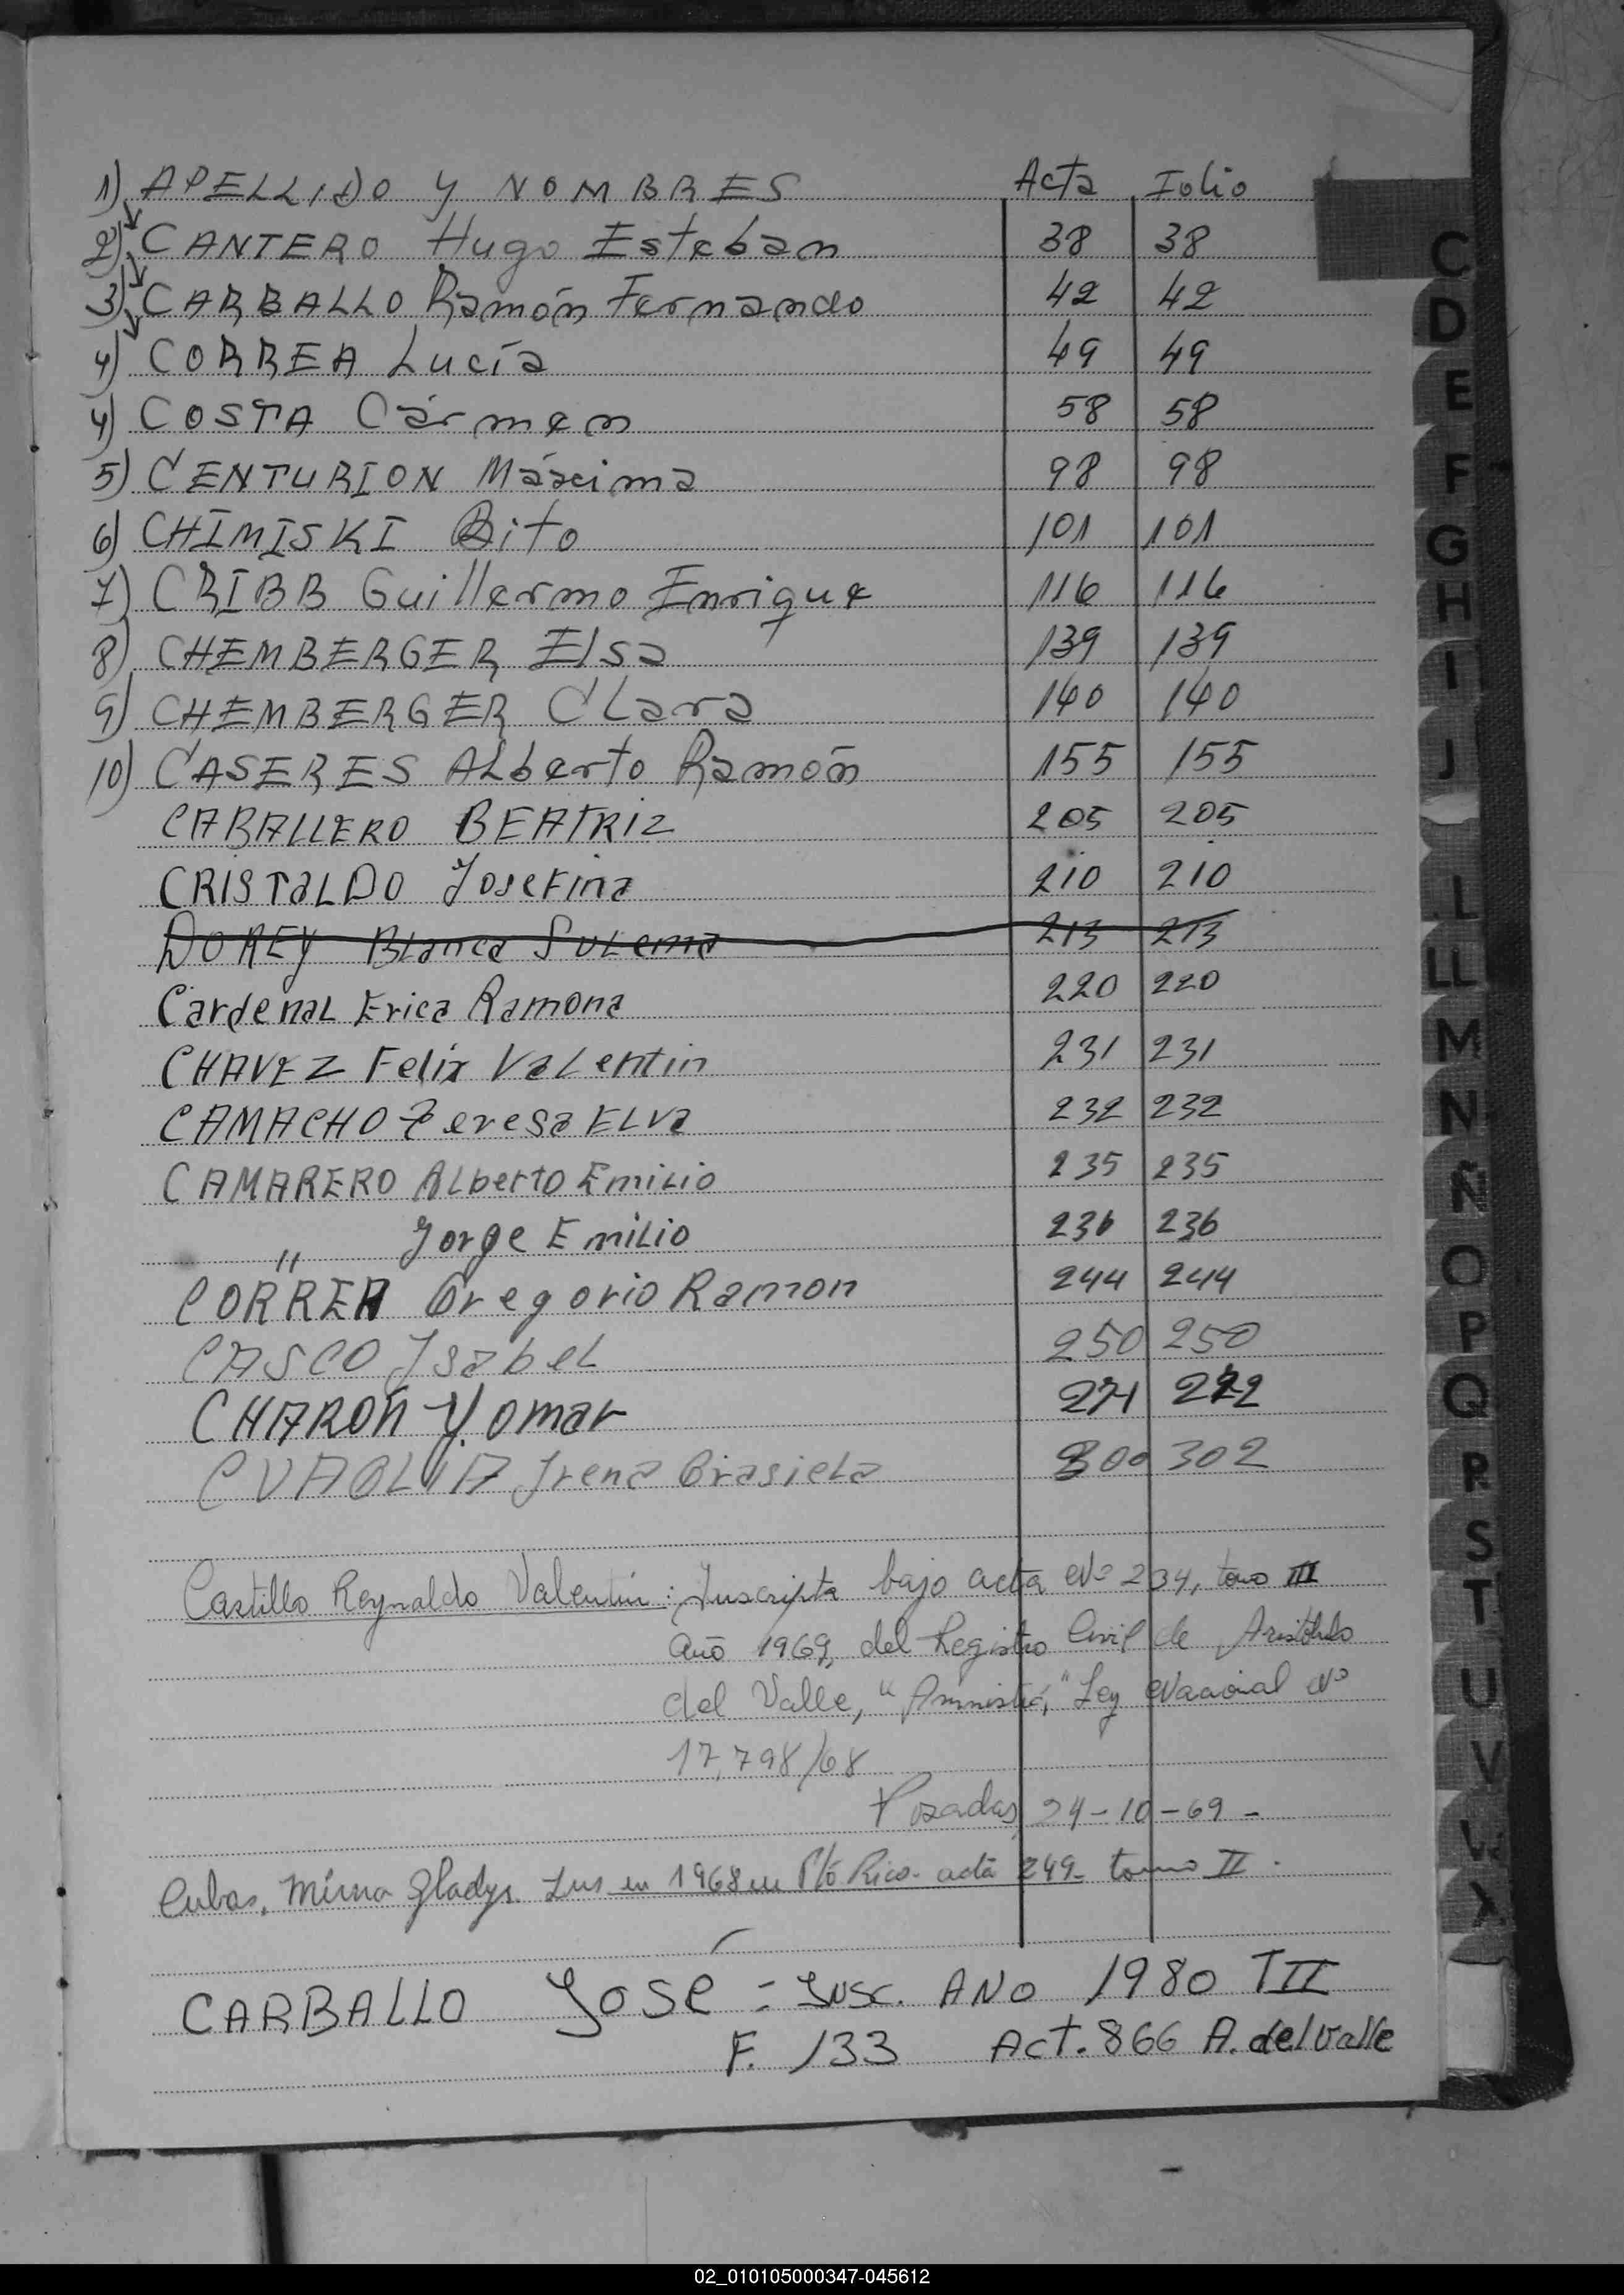 1) APELLIDO y NOMBRES Acta Folio
2) CANTERO Hugo Esteban 38 38
3) CARBALLO Ramón Fernando 42 42
4) CORREA Lucía 49 49
4) COSTA Cármen 58 58
5) CENTURION Máxima 98 98
6) CHIMISKI Bito 101 101
7) CRIBB Guillermo Enrique 116 116
8) CHEMBERGER Elsa 139 139
9) CHEMBERGER Clara 140 140
10) CASERES Alberto Ramón 155 155
CABALLERO BEATRIZ 205 205
CRISTALDO Josefina 210 210
DOREY Blanca Sulema 213 213
Cardenal Erica Ramona 220 220
CHAVEZ Felix Valentin 231 231
CAMACHO Teresa ELVa 232 232
CAMARERO Alberto Emilio 235 235
" Jorge Emilio 236 236
CORREA Gregorio Ramon 244 244
CASCO Ysabel 250 250
CHARON Y. omar 271 272
CUAGLIA Irena Grasiela 300 302
Castillo Reynaldo Valentin: Inscripta bajo acta Nº 234, tomo III
Año 1969, del Registro Civil de Aristóbulo
del Valle, "Amnistía," Ley Nacional Nº
17,798/68
Posadas, 24-10-69-
Cubas, Mirna Gladys. Ins en 1968 en Pto Rico- acta 249- tomo II.
CARBALLO José = Insc. ANO 1980 TII
F. 133 Act. 866 A. del Valle
C
D
E
F
G
H
I
J
L
LL
M
N
Ñ
O
P
Q
R
S
T
U
V
X
02_010105000347-045612